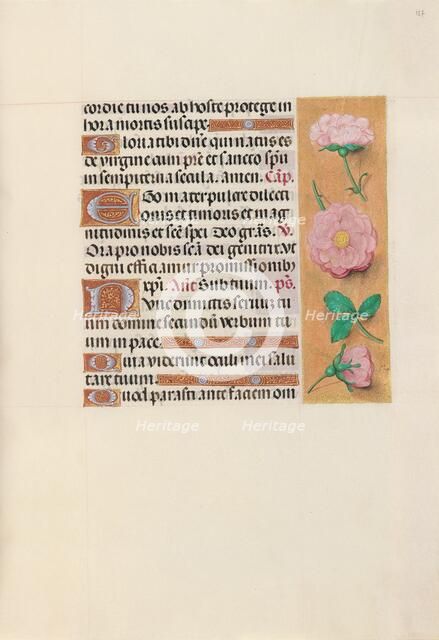 157
cordie tu nos ab hoste protege in
hora mortis suscipe.
Gloria tibi dn̄e qui natus es
de virgine cum pr̄e et sancto spū
in sempiterna secula. amen. Cap̄.
Ego mater pulcre dilecti
onis et timoris et mag
nitudinis et scē spei Deo grās. V̄.
Ora pro nobis scā dei genitrix. Vt
digni efficiamur promissionibꝰ
xpi. Añt Sub tuum. ps̄.
Nunc dimittis seruum tu
um domine secundum verbum tu
um in pace.
Quia viderunt oculi mei salu
tare tuum.
Quod parasti ante faciem om
Heritage Heritage
Heritage Heritage
Heritage Heritage